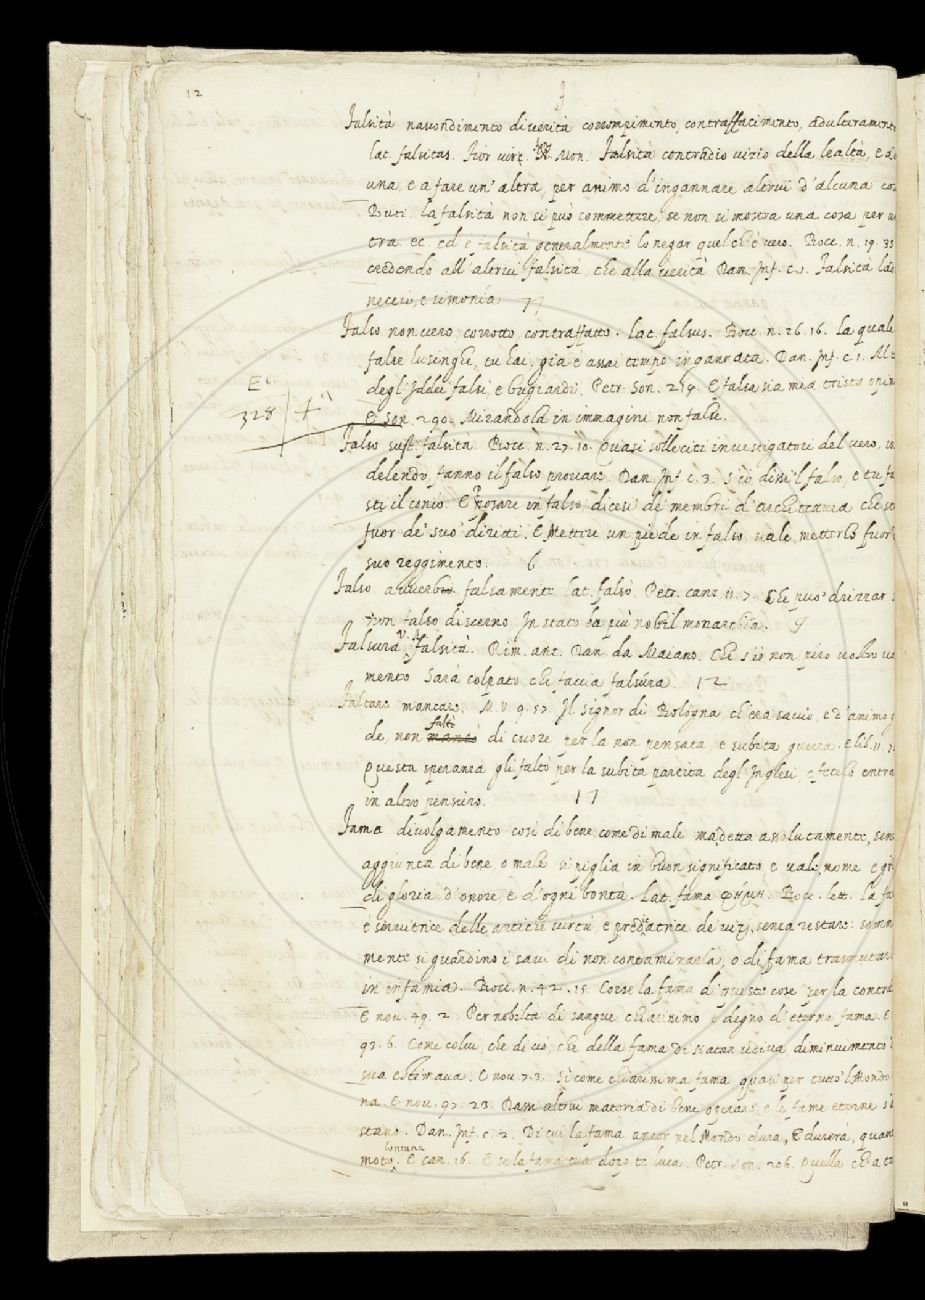 12
F
Falsità nascondimento di verità corrompimento, contraffacimento, adulteramento
lat. falsitas. Fior virt. Mon. Falsità contradio vizio della lealtà, e
una, e a fare un' altra, per animo d'ingannare altrui d'alcuna
Buti. La falsità non si può commettere, se non si mostra una cosa per
tra ec. ed è falsità generalmente lo negar quel ch'è vero. Bocc. n. 19. 35
credendo all' altrui falsità che alla verità Dan. Inf. c. Falsità
neccio, e simonia 77
Falso non vero, corrotto, contraffatto. Lat. falsus. Bocc. n. 26. 16. La quale
false lusinghe, tu hai, già è assai tempo ingannata. Dan. Inf. c. 1. Al
degl'Iddei falsi, e bugiardi. Petr. Son. E falsa sia mia trista
E son 290. Mirandola in immagini non false.
E
328 4
Falso sust. falsità. Bocc. n. 27. 10. Quasi solleciti investigatori del vero,
delendo, fanno il falso provare. Dan. Inf. c. 3. S'io dissi 'l falso, e tu
sti il conio. E Posare in falso, dicesi de' membri d'architettura che
fuor de' suo' diritti. E Mettere un piede in falso vale metterlo fuor
suo reggimento. 6
Falso avverbio. falsamente. lat. falso. Petr. canz. 11. 7. Che può drizzar
non falso discerno In stato la più nobil monarchia. 9
Falsura V.A. falsità. Rim. ant. Dan. da Maiano. Che s'io non pero vostro
mento Sarà colpato che faccia falsura. 12
Faltare mancare. M. V. 9. 57. Il signor di Bologna, ch'era savio, e d'animo
de, non manco faltò di cuore per la non pensata, e subita guerra. E lib. 11.
Questa speranza gli faltò per la subita partita degl'Inglesi, e fecelo
in altro pensiero. 17
Fama divolgamento così di bene, come di male ma detta assolutamente,
aggiunta di bene, o male si piglia in buon significato, e vale, nome e
di gloria d'onore, e d'ogni bontà. Lat. fama φήμη. Bocc. lett. la
è servitrice delle antiche virtù, e predicatrice de' vizj, senza restare:
mente si guardino i savi di non contaminarla, o di fama trasmutar
in infamia. Bocc. n. 42. 15. Corse la fama di queste cose per la
E nov. 49. 2. Per nobiltà di sangue chiarissimo e degno d'eterna fama. E
93. 6. Come colui, che di ciò, che della fama di Natan udiva diminuimento
sua estimava. E nov. 73. Sì come chiarissima fama quasi per tutto 'l Mondo
na. E nov. 97. 23 Dassi altrui materia di bene operare, e le fame eterne
stano. Dan. Inf. c. 2. Di cui la fama ancor nel Mondo dura, E durerà,
moto lontana. E can. 16. E se la fama tua dopo te luca. Petr. Son. 206. Quella ch'